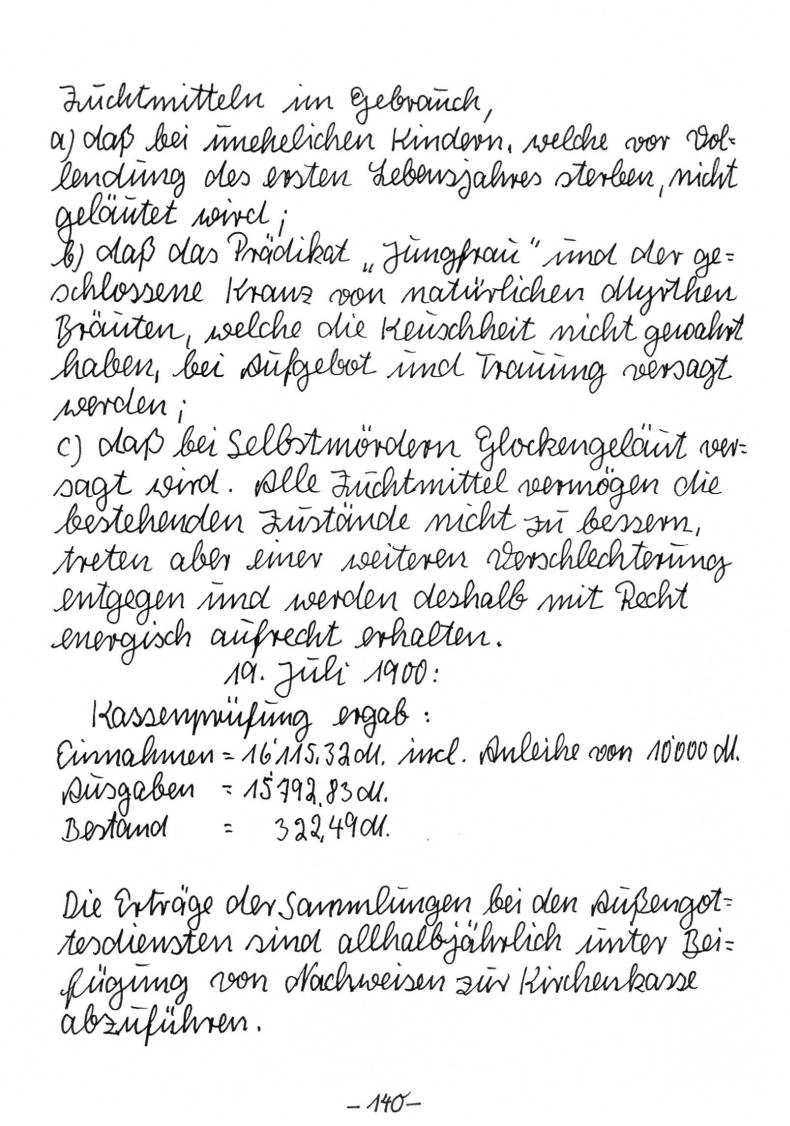 Zuchtmitteln im Gebrauch,
a) daß bei unehelichen Kindern, welche vor Vol=
lendung des ersten Lebensjahres sterben, nicht
geläutet wird;
b) daß das Prädikat „Jungfrau" und der ge=
schlossene Kranz von natürlichen Myrthen
Bräuten, welche die Keuschheit nicht gewahrt
haben, bei Aufgebot und Trauung versagt
werden;
c) daß bei Selbstmördern Glockengeläut ver=
sagt wird. Alle Zuchtmittel vermögen die
bestehenden Zustände nicht zu bessern,
treten aber einer weiteren Verschlechterung
entgegen und werden deshalb mit Recht
energisch aufrecht erhalten.
19. Juli 1900:
Kassenprüfung ergab:
Einnahmen = 16'115,32 M. incl. Anleihe von 10'000 M.
Ausgaben = 15'792,83 M.
Bestand = 322,49 M.
Die Erträge der Sammlungen bei den Außengot=
tesdiensten sind allhalbjährlich unter Bei=
fügung von Nachweisen zur Kirchenkasse
abzuführen.
-140-